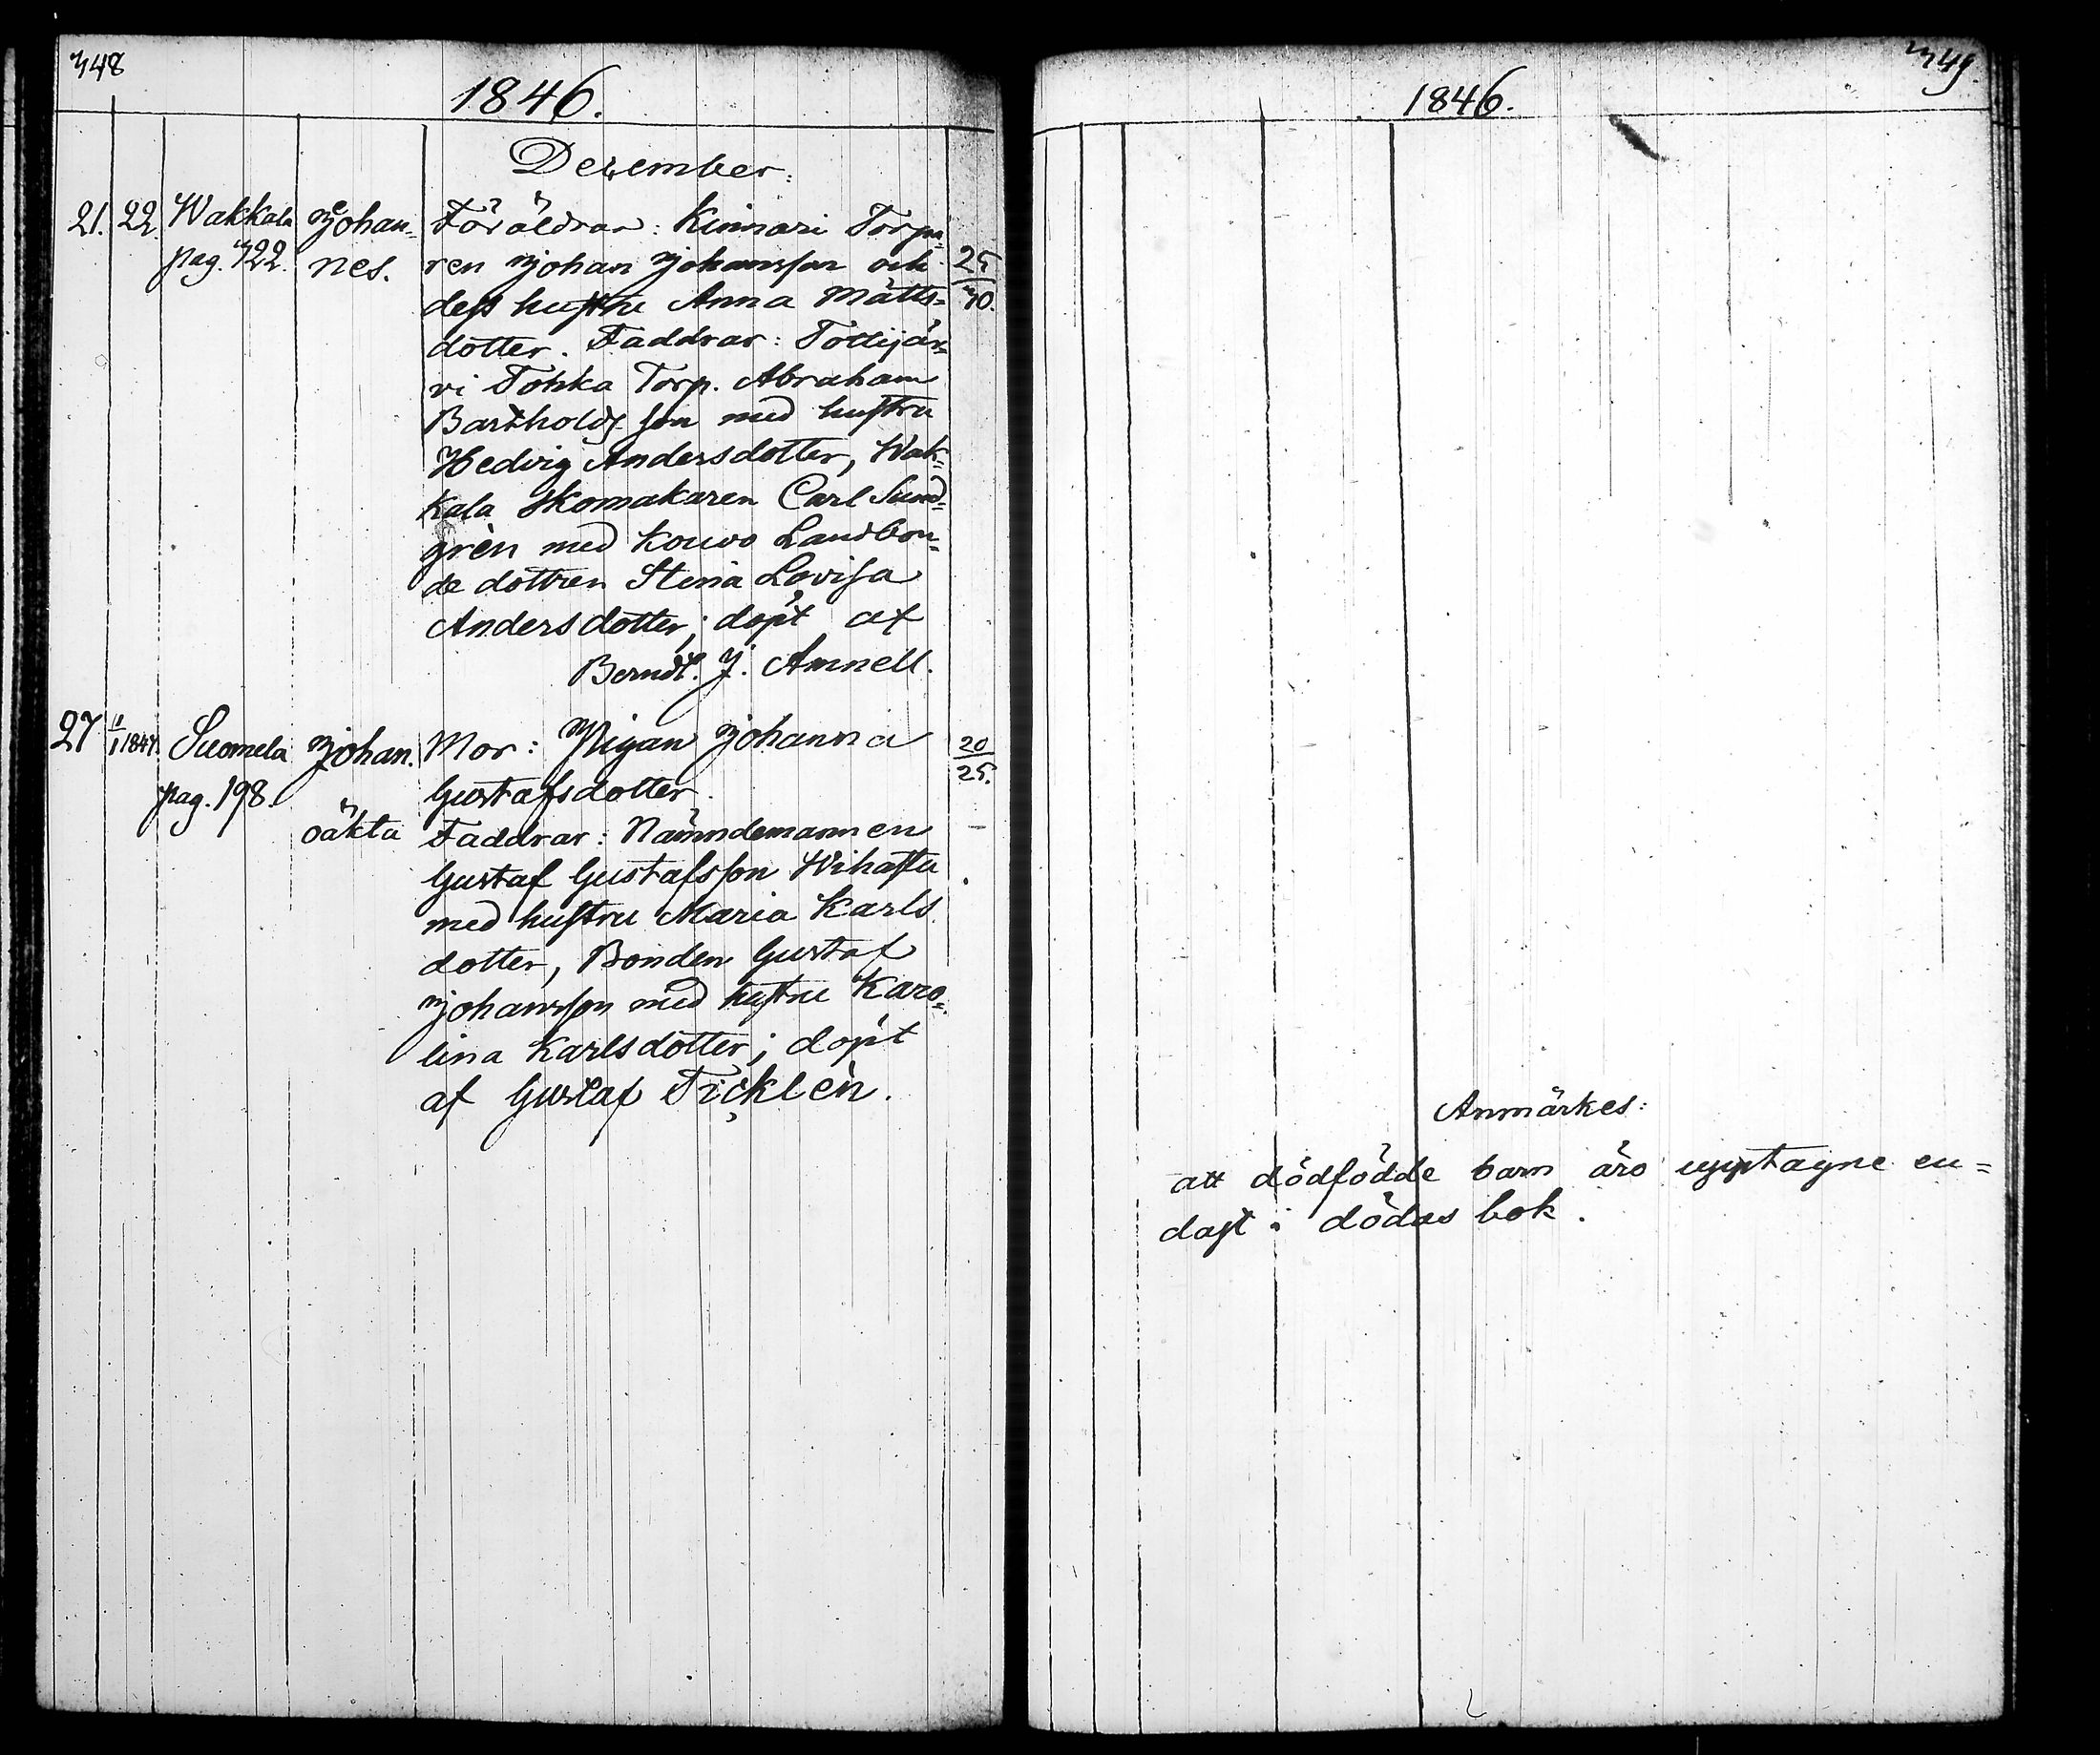 348
1846.
December:
21. 22. Wakkala Johan- Föräldrar: Kinnari Torpa-
pag. 322. nes. ren Johan Johansson och 25/30.
dess hustru Anna Matts-
dotter. Faddrar: Tottijär-
vi Tohka Torp. Abraham
Bartholdsson med hustru
Hedvig Andersdotter, Wak-
kala Skomakaren Carl Sund-
grèn med Kouvo Landbon-
de dottren Stina Lovisa
Andersdotter; döpt af
Berndt. J. Amnell.
27 11/1 1847. Suomela Johan. Mor: Pigan Johanna 20/25.
pag. 198. Gustafsdotter.
oäkta Faddrar: Nämndemannen
Gustaf Gustafsson Wihattu
med hustru Maria Karls
dotter, Bonden Gustaf
Johansson med hustru Karo-
lina Karlsdotter; döpt
af Gustaf Ticklèn.
349.
1846.
Anmärkes:
att dödfödde barn äro upptagne en=
dast i dödas bok.